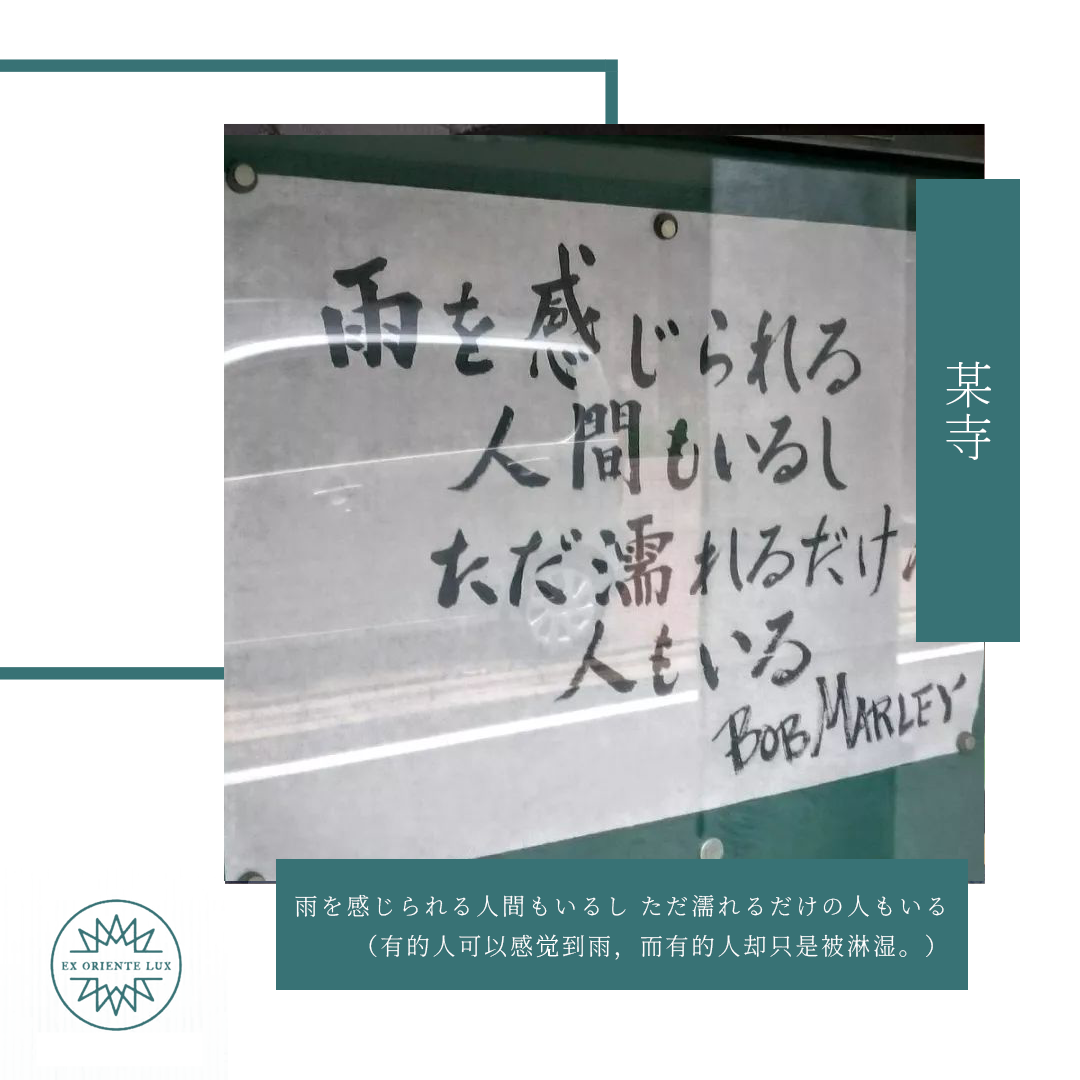 雨を感じられる
人間もいるし
ただ濡れるだけ
人もいる
BOB MARLEY
某寺
雨を感じられる人間もいるし ただ濡れるだけの人もいる
（有的人可以感觉到雨，而有的人却只是被淋湿。）
EX ORIENTE LUX